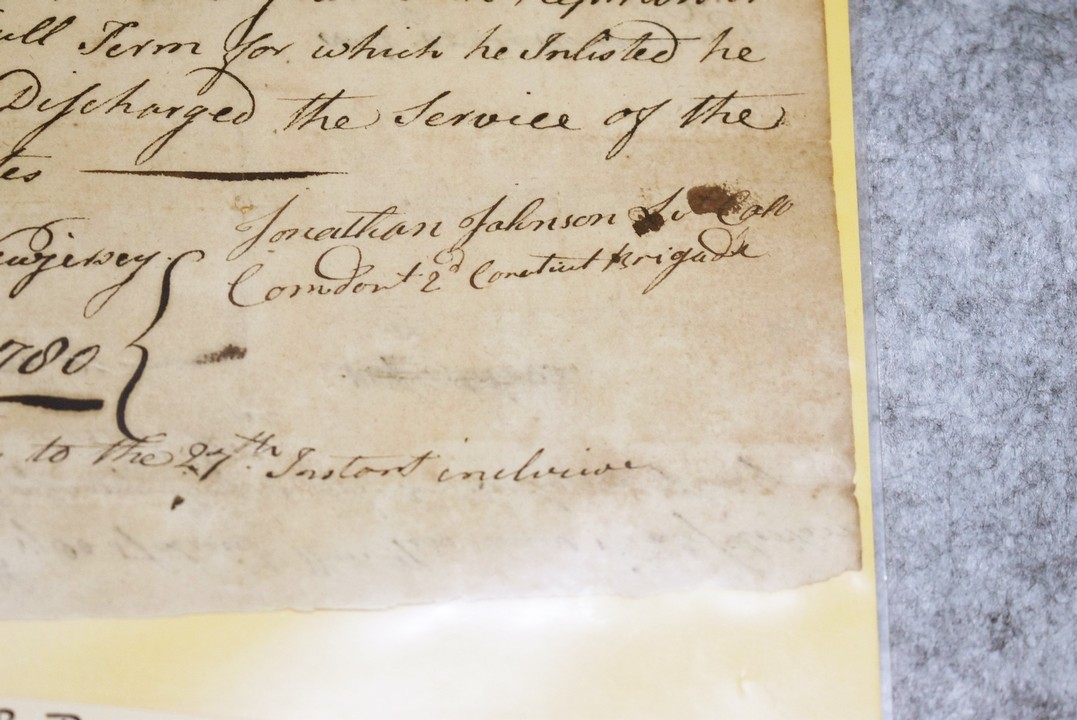 ull Term for which he Inlisted he
Discharged the Service of the
tes
Jonathan Johnson Lt Coll
ewjersey Comdont 2d Coneticut Brigade
1780
to the 27th Instant inclusive